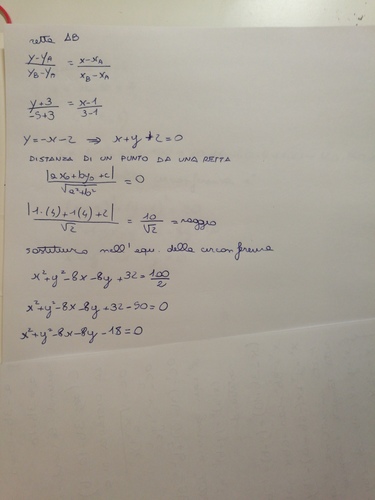 retta AB
y-yA / yB-yA = x-xA / xB-xA
y+3 / -5+3 = x-1 / 3-1
y=-x-2 ⇒ x+y+2=0
DISTANZA DI UN PUNTO DA UNA RETTA
|ax₀+by₀+c| / √a²+b² = 0
|1·(4)+1(4)+2| / √2 = 10/√2 = raggio
sostituisco nell'equ. della circonferenza
x²+y²-8x-8y+32=100/2
x²+y²-8x-8y+32-50=0
x²+y²-8x-8y-18=0